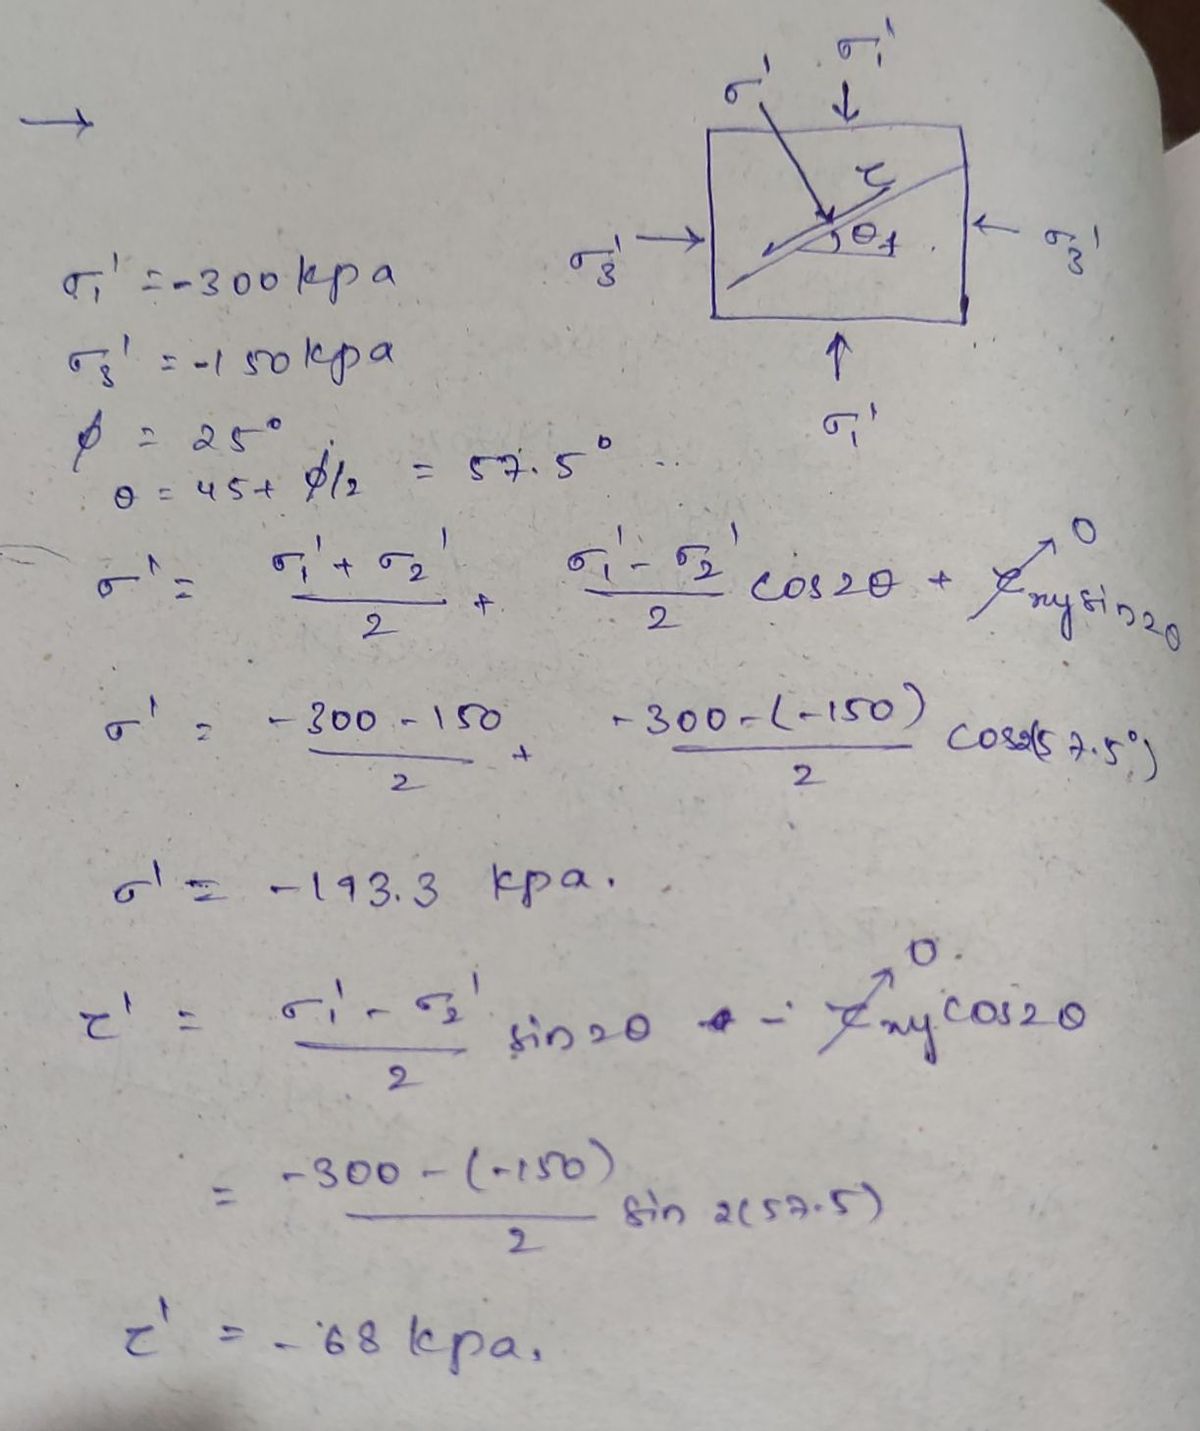 →
σ₁'
σ'
τ
θf
σ₃'
σ₃'
σ₁'
σ₁' = -300 kpa
σ₃' = -150 kpa
ϕ = 25°
θ = 45 + ϕ/2 = 57.5°
σ' = (σ₁' + σ₂')/2 + (σ₁' - σ₂')/2 cos2θ + τxy sin2θ → 0
σ' = (-300 - 150)/2 + (-300 - (-150))/2 cos2(57.5°)
σ' = -193.3 kpa.
τ' = (σ₁' - σ₂')/2 sin2θ - τxy cos2θ → 0
= (-300 - (-150))/2 sin 2(57.5)
τ' = -68 kpa.